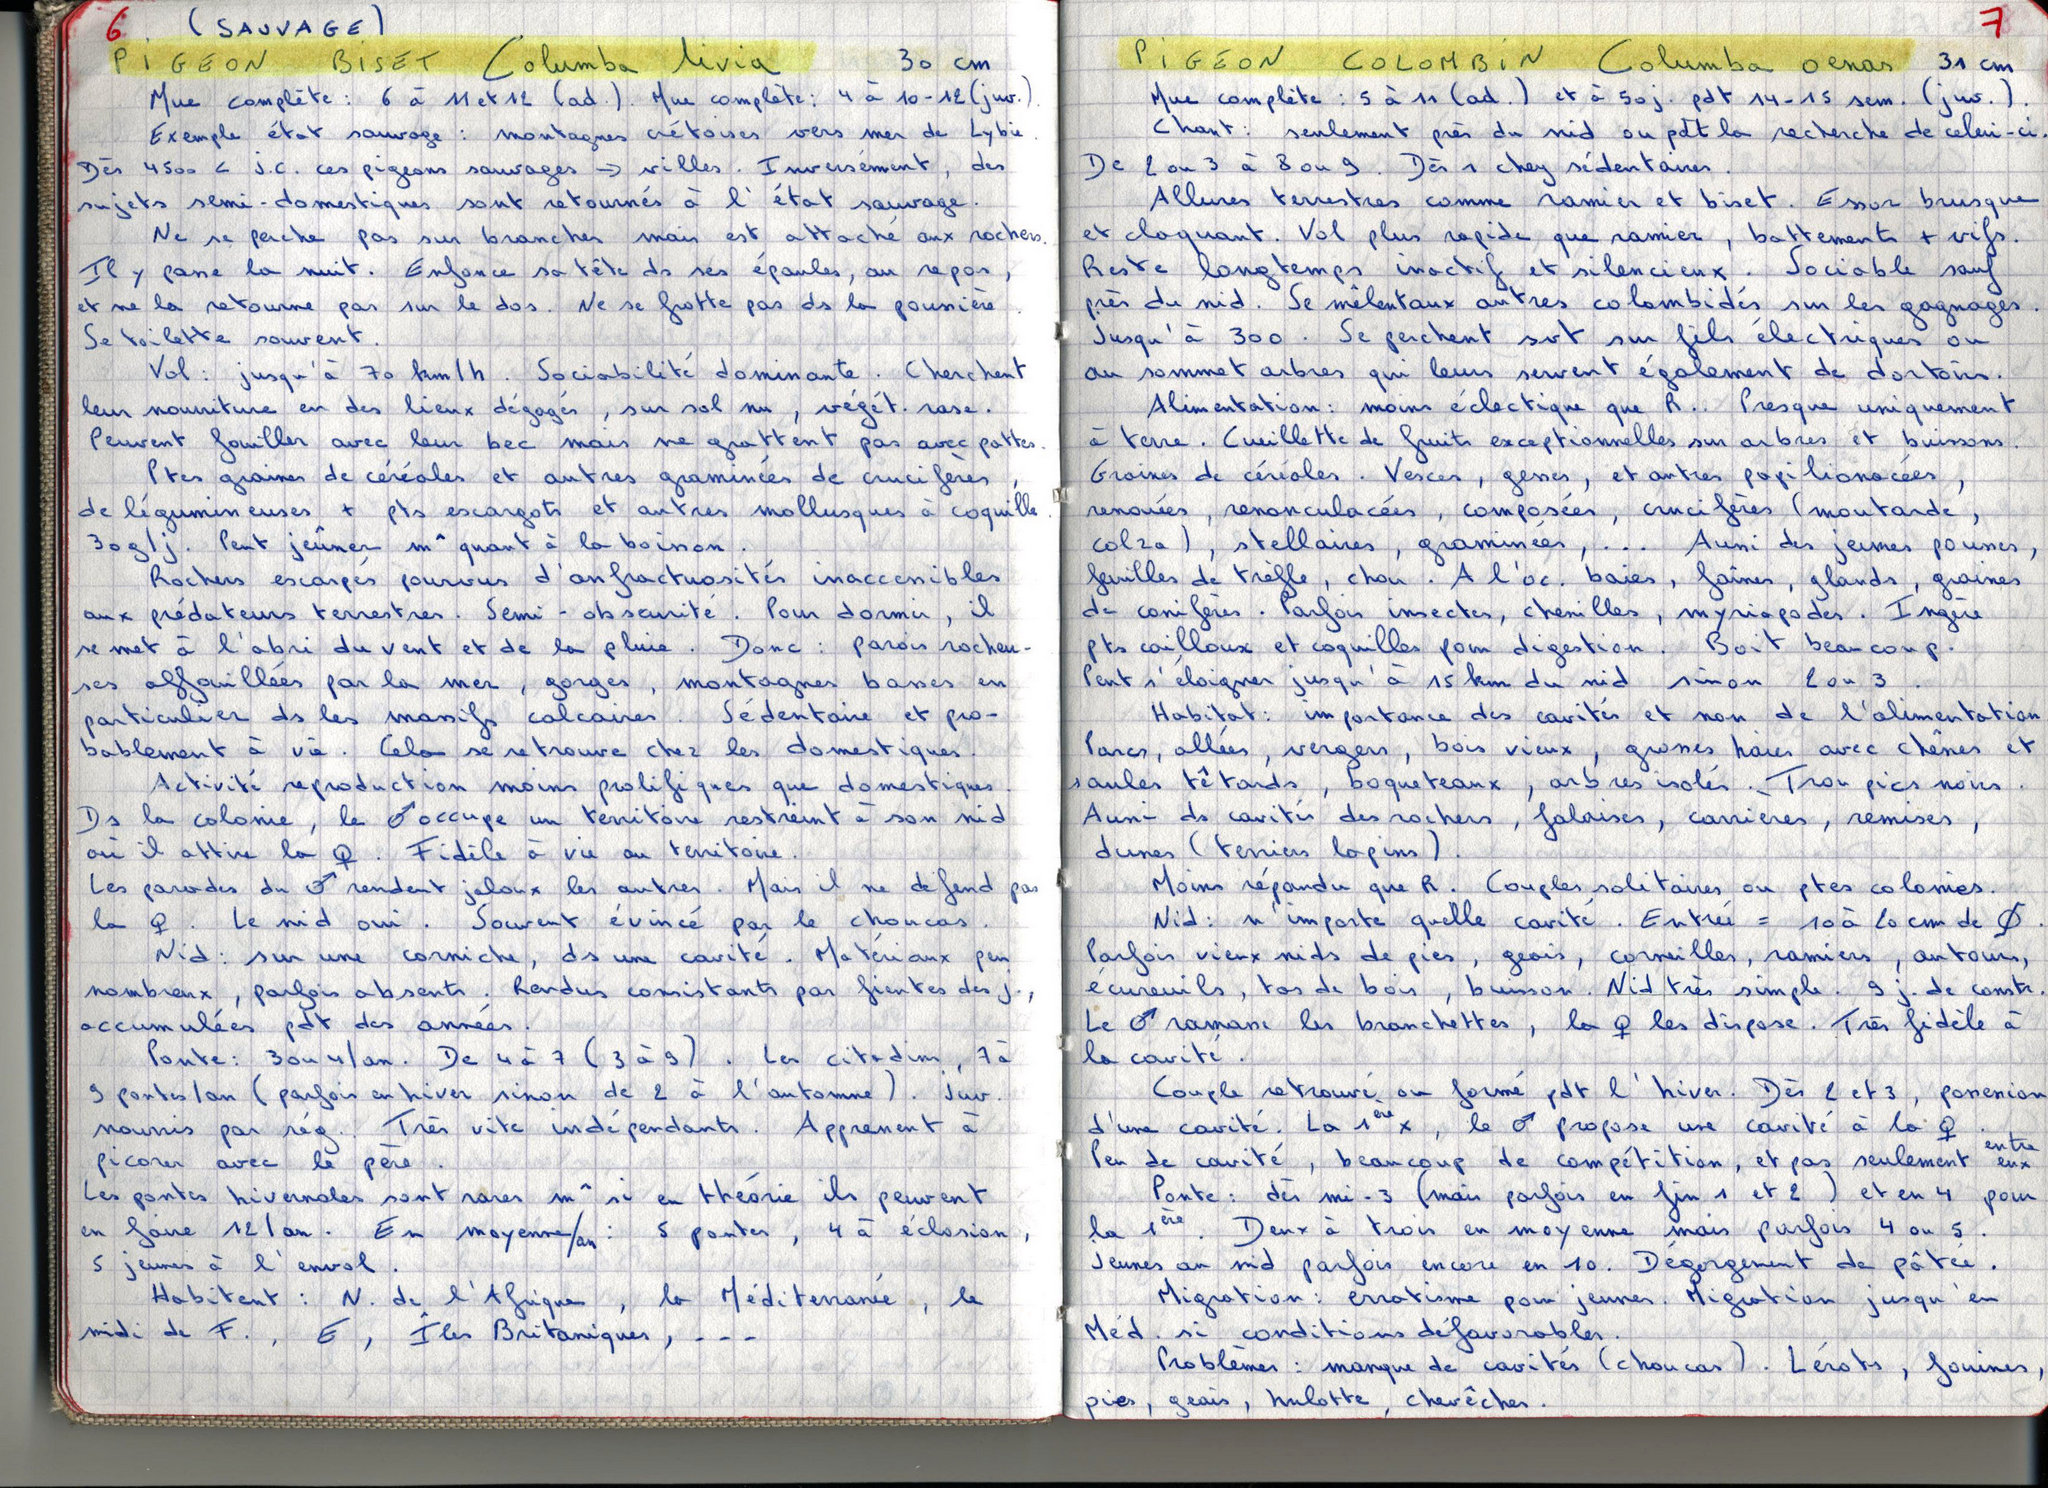 6 (SAUVAGE)
PIGEON BISET Columba livia 30 cm
Mue complète : 6 à 11 et 12 (ad.). Mue complète : 4 à 10-12 (juv.).
Exemple état sauvage : montagnes crétoises vers mer de Lybie.
Dès 4500 < J.C. ces pigeons sauvages → villes. Inversément, des
sujets semi-domestiques sont retournés à l'état sauvage.
Ne se perche pas sur branches mais est attaché aux rochers.
Il y passe la nuit. Enfonce sa tête ds ses épaules, au repos,
et ne la retourne pas sur le dos. Ne se frotte pas ds la poussière.
Se toilette souvent.
Vol : jusqu'à 70 km/h. Sociabilité dominante. Cherchent
leur nourriture en des lieux dégagés, sur sol nu, végét. rase.
Peuvent fouiller avec leur bec mais ne grattent pas avec pattes.
Ptes graines de céréales et autres graminées de crucifères,
de légumineuses + pts escargots et autres mollusques à coquille.
30g/j. Peut jeûner m^ quant à la boisson.
Rochers escarpés pourvus d'anfractuosités inaccessibles
aux prédateurs terrestres. Semi-obscurité. Pour dormir, il
se met à l'abri du vent et de la pluie. Donc : parois rocheu-
ses affouillées par la mer, gorges, montagnes basses en
particulier ds les massifs calcaires. Sédentaire et pro-
bablement à vie. Cela se retrouve chez les domestiques.
Activité reproduction moins prolifiques que domestiques.
Ds la colonie, le ♂ occupe un territoire restreint à son nid
où il attire la ♀. Fidèle à vie au territoire.
Les parades du ♂ rendent jaloux les autres. Mais il ne défend pas
la ♀. Le nid oui. Souvent évincé par le choucas.
Nid : sur une corniche, ds une cavité. Matériaux peu
nombreux, parfois absents. Rendus consistants par fientes des j.,
accumulées pdt des années.
Ponte : 3 ou 4/an. De 4 à 7 (3 à 9). Les citadins, 7 à
9 pontes/an (parfois en hiver sinon de 2 à l'automne). Juv.
nourris par rég. Très vite indépendants. Apprenent à
picorer avec le père.
Les pontes hivernales sont rares m^ si en théorie ils peuvent
en faire 12/an. En moyenne/an : 5 pontes, 4 à éclosion,
5 jeunes à l'envol.
Habitent : N. de l'Afrique, la Méditerranée, le
midi de F., E, Îles Britaniques, ---
7
PIGEON COLOMBIN Columba oenas 31 cm
Mue complète : 5 à 11 (ad.) et à 50 j. pdt 14-15 sem. (juv.).
Chant : seulement près du nid ou pdt la recherche de celui-ci.
De 2 ou 3 à 8 ou 9. Dès 1 chez sédentaires.
Allures terrestres comme ramier et biset. Essor brusque
et claquant. Vol plus rapide que ramier, battements + vifs.
Reste longtemps inactif et silencieux. Sociable sauf
près du nid. Se mêlent aux autres colombidés sur les gagnages.
Jusqu'à 300. Se perchent svt sur fils électriques ou
au sommet arbres qui leurs servent également de dortoirs.
Alimentation : moins éclectique que R.. Presque uniquement
à terre. Cueillette de fruits exceptionnelles sur arbres et buissons.
Graines de céréales. Vesces, gesses, et autres papilionacées,
renouées, renonculacées, composées, crucifères (moutarde,
colza), stellaires, graminées, ... Aussi des jeunes pousses,
feuilles de trèfle, chou. A l'oc. baies, faînes, glands, graines
de conifères. Parfois insectes, chenilles, myriapodes. Ingère
pts cailloux et coquilles pour digestion. Boit beaucoup.
Peut s'éloigner jusqu'à 15 km du nid sinon 2 ou 3.
Habitat : importance des cavités et non de l'alimentation
Parcs, allées, vergers, bois vieux, grosses haies avec chênes et
saules têtards, boqueteaux, arbres isolés. Trou pics noirs.
Aussi ds cavités des rochers, falaises, carrières, remises,
dunes (terriers lapins).
Moins répandu que R. Couples solitaires ou ptes colonies.
Nid : n'importe quelle cavité. Entrée = 10 à 20 cm de Ø.
Parfois vieux nids de pies, geais, corneilles, ramiers, autours,
écureuils, tas de bois, buisson. Nid très simple. 9 j. de constr.
Le ♂ ramasse les branchettes, la ♀ les dispose. Très fidèle à
la cavité.
Couple retrouvé ou formé pdt l'hiver. Dès 2 et 3, possession
d'une cavité. La 1ère x, le ♂ propose une cavité à la ♀.
Peu de cavité, beaucoup de compétition, et pas seulement entre eux
Ponte : dès mi-3 (mais parfois en fin 1 et 2) et en 4 pour
la 1ère. Deux à trois en moyenne mais parfois 4 ou 5.
Jeunes au nid parfois encore en 10. Dégorgement de pâtée.
Migration : erratisme pour jeunes. Migration jusqu'en
Méd. si conditions défavorables.
Problèmes : manque de cavités (choucas). Lérots, fouines,
pies, geais, hulotte, chevêches.